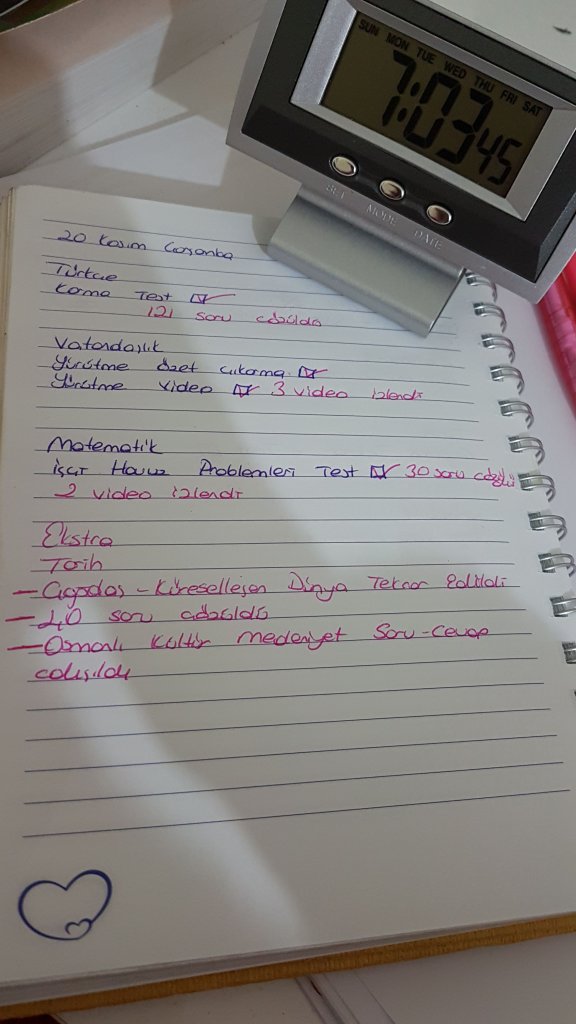 SUN MON TUE WED THU FRI SAT
7:03 45
SET MODE DATE
20 Kasım Çarşamba
Türkçe
Karma Test
121 soru çözüldü
Vatandaşlık
Yürütme özet çıkarma
Yürütme video 3 video izlendi
Matematik
İşçi Havuz Problemleri Test 30 soru çözüldü
2 video izlendi
Ekstra
Tarih
- Çağdaş - Küreselleşen Dünya Tekrar Edildi
- 40 soru çözüldü
- Osmanlı Kültür medeniyet Soru-Cevap
çalışıldı